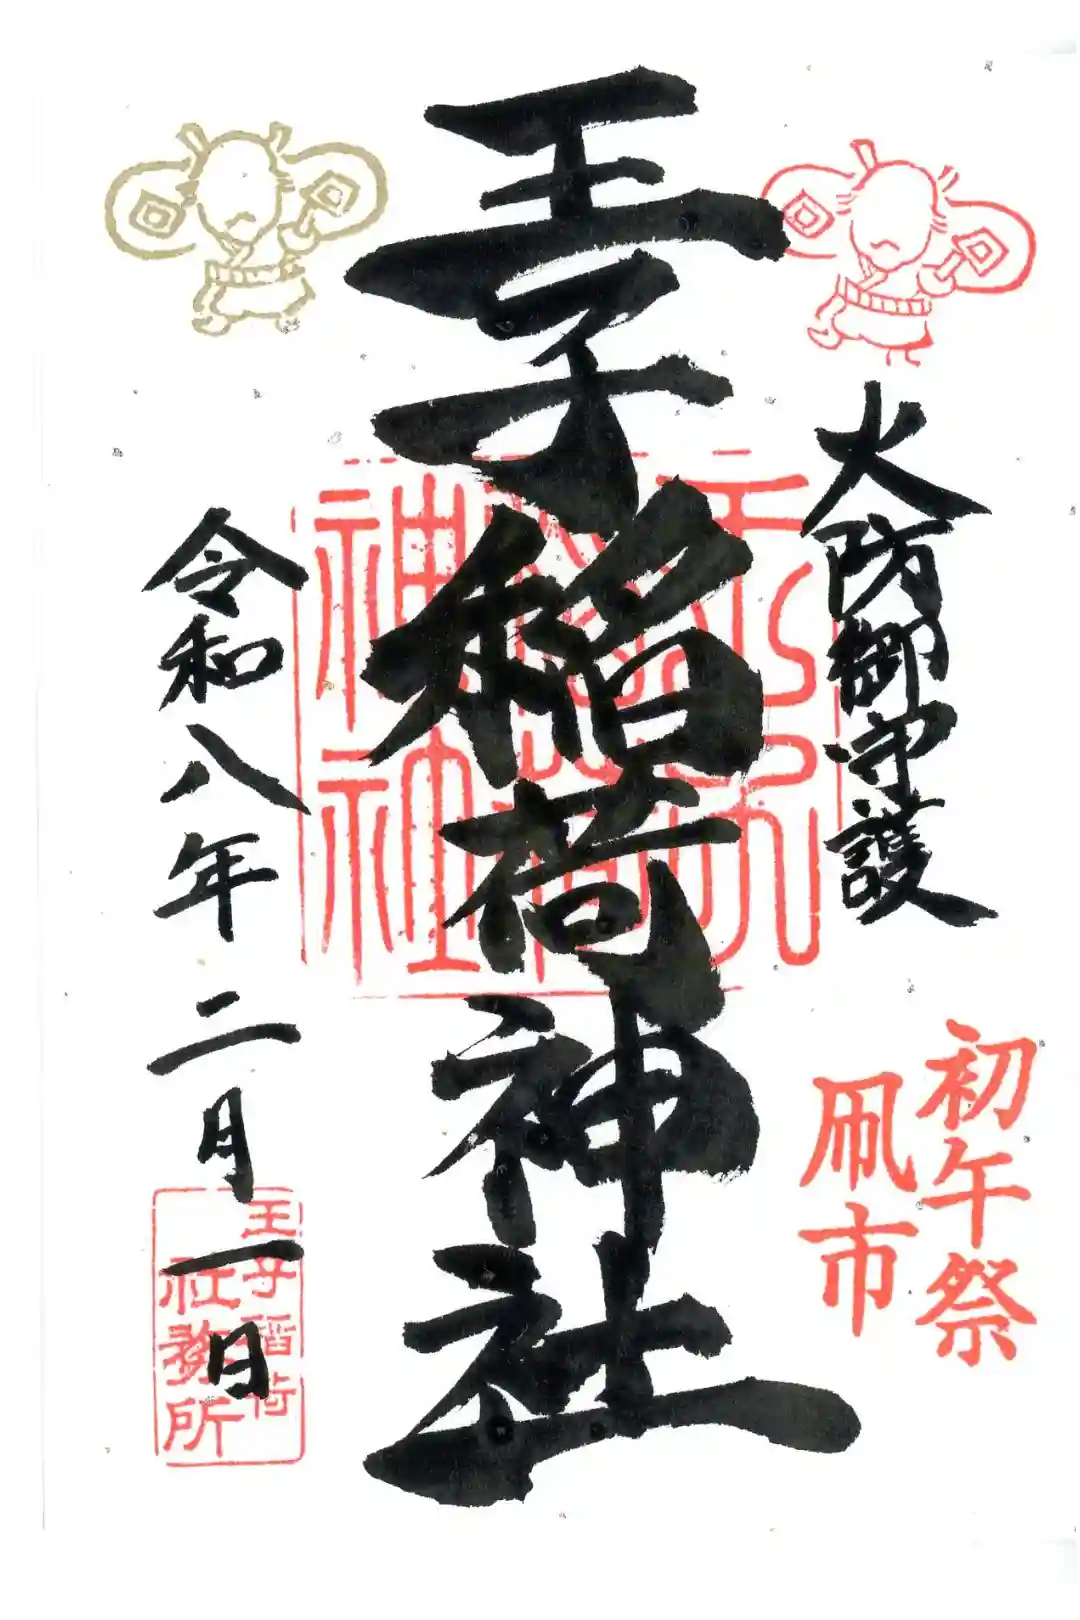 火防御守護
初午祭
凧市
王子稲荷神社
王子稲荷神社
令和八年二月一日
王子稲荷
社務所